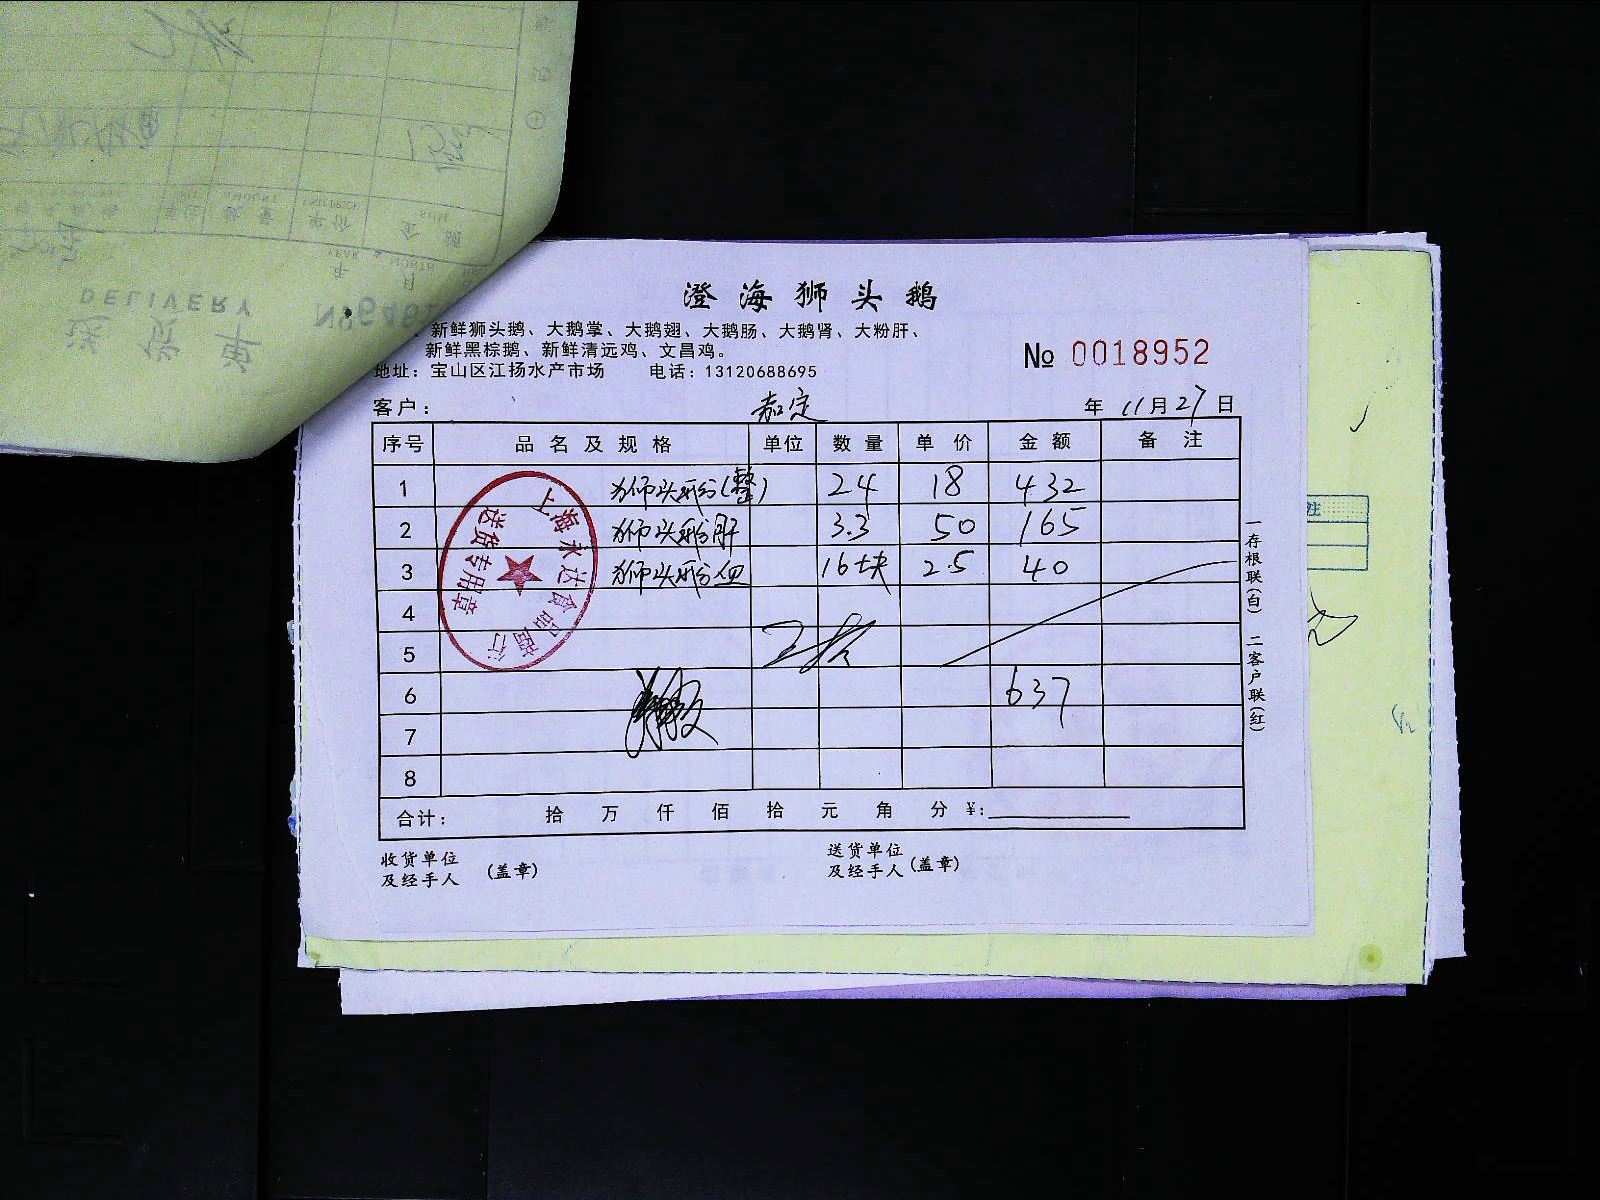 澄海狮头鹅
：新鲜狮头鹅、大鹅掌、大鹅翅、大鹅肠、大鹅肾、大粉肝、
新鲜黑棕鹅、新鲜清远鸡、文昌鸡。
地址：宝山区江扬水产市场 电话：13120688695
№ 0018952
客户： 嘉定 年 11月27日
序号 品名及规格 单位 数量 单价 金额 备注
1 狮头鹅(整) 24 18 432
2 狮头鹅肝 3.3 50 165
3 狮头鹅血 16块 2.5 40
4
5
6 637
7
8
合计： 拾 万 仟 佰 拾 元 角 分 ¥:
收货单位及经手人 (盖章)
送货单位及经手人 (盖章)
一存根联(白) 二客户联(红)
上海永达食品商行
送货专用章
送货单
DELIVERY